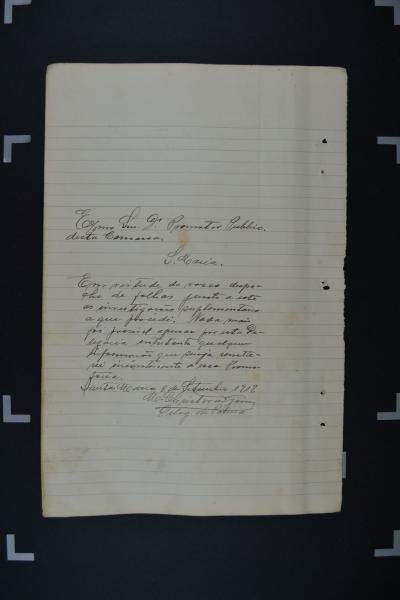 Exmo Snr. Dr Promotor Publico,
desta Comarca.
S. Maria.
Em virtude do vosso despa-
cho de folhas junto a este
as investigações suplementares
a que procedi. Nada mais
foi possivel apurar por esta De-
legacia entretanto qualquer
informação que surja remette-
rei incontinente a essa Promo-
toria.
Santa Maria 8 de Setembro 1918
Deleg. de Policia